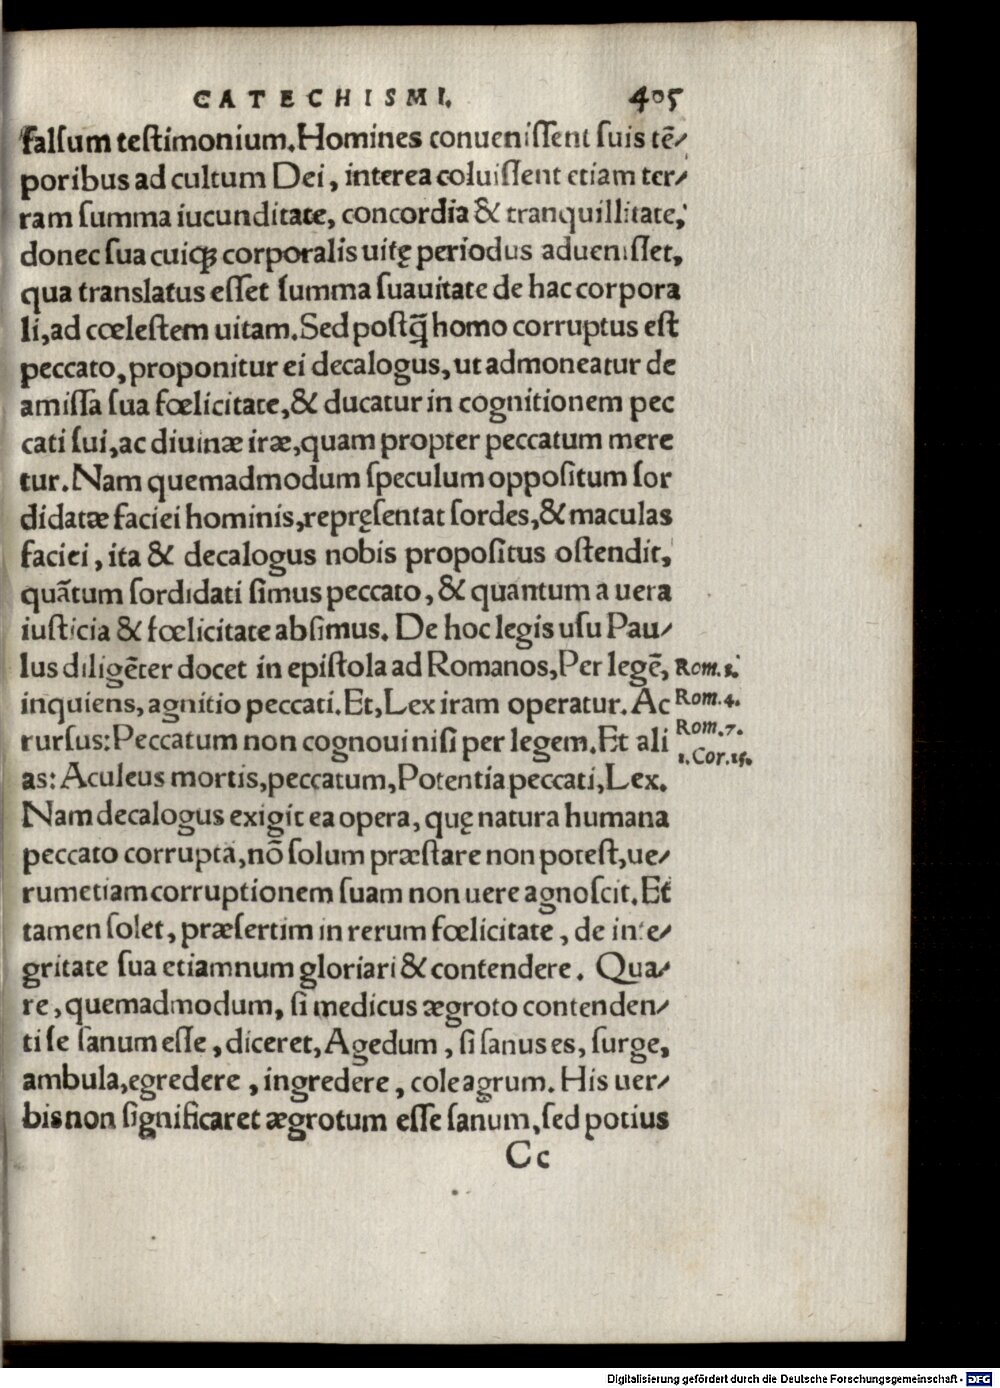 CATECHISMI. 405
falſum teſtimonium. Homines conueniſſent ſuis tē⸗
poribus ad cultum Dei, interea coluiſſent etiam ter⸗
ram ſumma iucunditate, concordia & tranquillitate,
donec ſua cuiqꝫ corporalis uitę periodus adueniſſet,
qua translatus eſſet ſumma ſuauitate de hac corpora
li, ad cœleſtem uitam. Sed poſtꝗ̃ homo corruptus eſt
peccato, proponitur ei decalogus, ut admoneatur de
amiſſa ſua fœlicitate, & ducatur in cognitionem pec
cati ſui, ac diuinæ iræ, quam propter peccatum mere
tur. Nam quemadmodum ſpeculum oppoſitum ſor
didatæ faciei hominis, repręſentat ſordes, & maculas
faciei, ita & decalogus nobis propoſitus oſtendit,
quãtum ſordidati ſimus peccato, & quantum a uera
iuſticia & fœlicitate abſimus. De hoc legis uſu Pau⸗
lus diligẽter docet in epiſtola ad Romanos, Per legē, Rom. 3.
inquiens, agnitio peccati. Et, Lex iram operatur. Ac Rom. 4.
rurſus: Peccatum non cognoui niſi per legem. Et ali Rom. 7.
as: Aculeus mortis, peccatum, Potentia peccati, Lex. 1. Cor. 15.
Nam decalogus exigit ea opera, quę natura humana
peccato corrupta, nõ ſolum præſtare non poteſt, ue⸗
rumetiam corruptionem ſuam non uere agnoſcit. Et
tamen ſolet, præſertim in rerum fœlicitate, de inte⸗
gritate ſua etiamnum gloriari & contendere. Qua⸗
re, quemadmodum, ſi medicus ægroto contenden⸗
ti ſe ſanum eſſe, diceret, Agedum, ſi ſanus es, ſurge,
ambula, egredere, ingredere, cole agrum. His uer⸗
bis non ſignificaret ægrotum eſſe ſanum, ſed potius
Cc
Digitalisierung gefördert durch die Deutsche Forschungsgemeinschaft - DFG